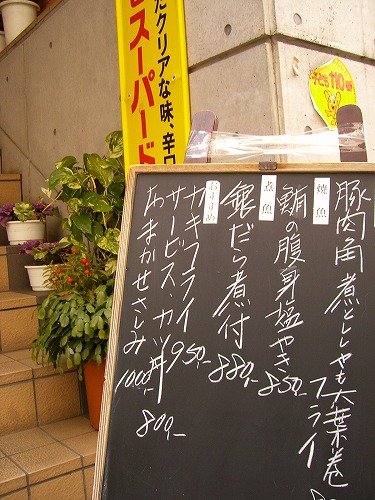 豚肉角煮とししゃも大葉巻
フライ
焼魚
鮪の腹身塩やき 850,-
煮魚
銀だら煮付 880,-
おすすめ
カキフライ 950,-
サービス・カツ丼 800,-
おまかせさしみ 1000,-
たクリアな味、辛口
スーパード
子ども110